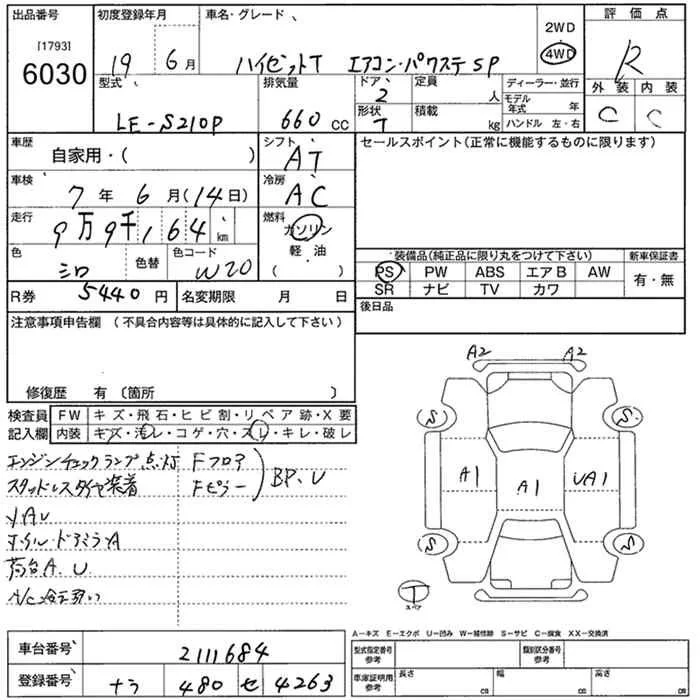 出品番号
[1793]
6030
初度登録年月
19 6月
車名・グレード
ハイゼットT エアコン・パワステ SP
2WD
4WD
評価点
R
型式
LE-S210P
排気量
660 CC
ドア
2
形状
T
定員
人
積載
kg
ディーラー・並行
モデル年式 年
ハンドル 左・右
外装 内装
C C
車歴
自家用・( )
シフト
AT
セールスポイント(正常に機能するものに限ります)
車検
7年 6月(14日)
冷房
AC
走行
9万9千164 km
燃料
ガソリン
軽油
( )
色
シロ
色替
色コード
W20
装備品(純正品に限り丸をつけて下さい)
新車保証書
PS PW ABS エアB AW
SR ナビ TV カワ
有・無
R券 5440円
名変期限 月 日
後日品
注意事項申告欄 (不具合内容等は具体的に記入して下さい)
修復歴 有 〔箇所 〕
検査員記入欄
FW キズ・飛石・ヒビ割・リペア跡・X要
内装 キズ・汚レ・コゲ・穴・スレ・キレ・破レ
エンジンチェックランプ点灯
スタッドレスタイヤ装着
Fフロア
Fピラー
BP.U
ドアミラーA
荷台A.U
A2 A2
S S
A1 A1 UA1
S S
T
スペア
A-キズ E-エクボ U-凹み W-補修跡 S-サビ C-腐食 XX-交換済
車台番号 2111684
登録番号 ナラ 480 セ 4263
型式指定番号
参考
類別区分番号
参考
車庫証明用
参考
長さ cm
幅 cm
高さ cm